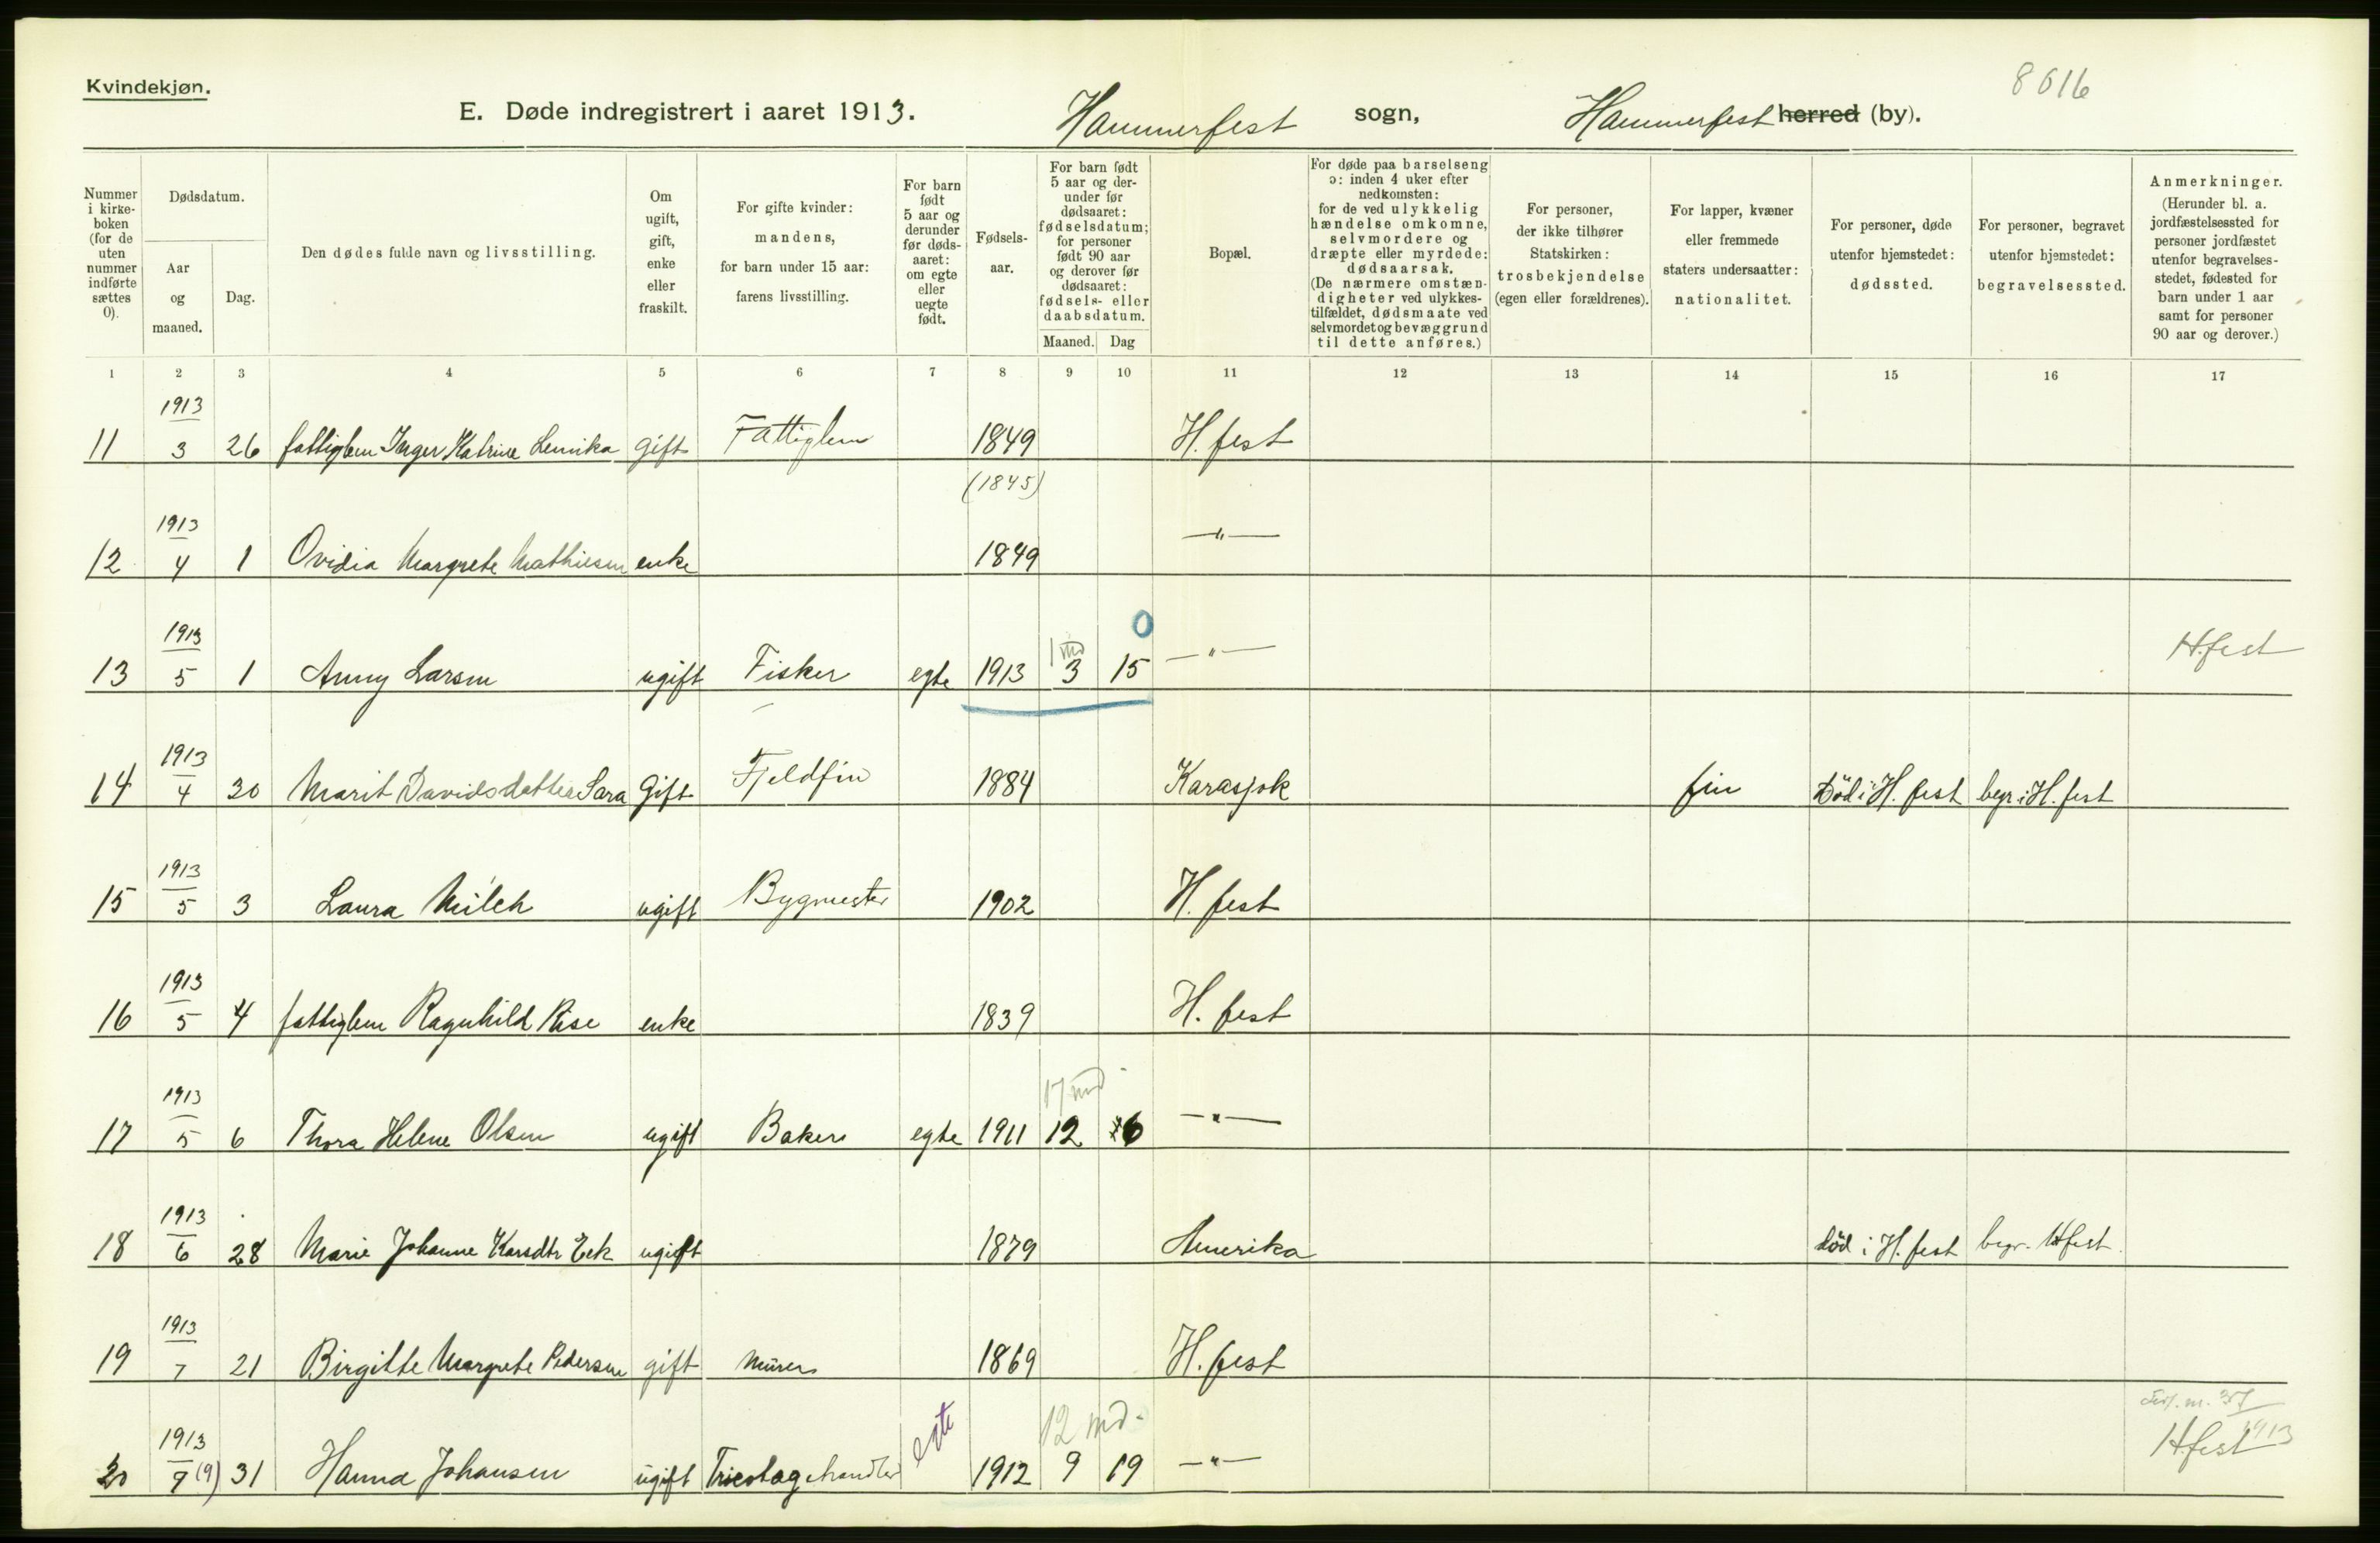 Kvindekjøn.
8616
E. Døde indregistrert i aaret 1913. Hammerfest sogn, Hammerfest herred (by).
Nummer i kirkeboken (for de uten nummer indførte sættes 0).
Dødsdatum.
Aar og maaned.
Dag.
Den dødes fulde navn og livsstilling.
Om ugift, gift, enke eller fraskilt.
For gifte kvinder: mandens, for barn under 15 aar: farens livsstilling.
For barn født 5 aar og derunder før dødsaaret: om egte eller uegte født.
Fødselsaar.
For barn født 5 aar og derunder før dødsaaret: fødselsdatum; for personer født 90 aar og derover før dødsaaret: fødsels- eller daabsdatum.
Maaned. Dag
Bopæl.
For døde paa barselseng ɔ: inden 4 uker efter nedkomsten: for de ved ulykkelig hændelse omkomne, selvmordere og dræpte eller myrdede: dødsaarsak. (De nærmere omstændigheter ved ulykkestilfældet, dødsmaate ved selvmordet og bevæggrund til dette anføres.)
For personer, der ikke tilhører Statskirken: trosbekjendelse (egen eller forældrenes).
For lapper, kvæner eller fremmede staters undersaatter: nationalitet.
For personer, døde utenfor hjemstedet: dødssted.
For personer, begravet utenfor hjemstedet: begravelsessted.
Anmerkninger. (Herunder bl. a. jordfæstelsessted for personer jordfæstet utenfor begravelsesstedet, fødested for barn under 1 aar samt for personer 90 aar og derover.)
1 2 3 4 5 6 7 8 9 10 11 12 13 14 15 16 17
1913
11 3 26 fattiglem Inger Katrine Lemika gift Fattiglem 1849 H.fest
(1845)
1913
12 4 1 Ovidia Margrete Mathiesen enke 1849 —"—
1913 0
1 md
13 5 1 Anny Larsen ugift Fisker egte 1913 3 15 —"— H.fest
1913
14 4 30 Marit Davidsdatter Sara Gift Fjeldfin 1884 Karasjok fin Död i H.fest begr. i H.fest
1913
15 5 3 Laura Milch ugift Bygmester 1902 H.fest
1913
16 5 4 fattiglem Ragnhild Rise enke 1839 H.fest
1913 17 md
17 5 6 Thora Helene Olsen ugift Baker egte 1911 12 6 —"—
1913
18 6 28 Marie Johanne Karsdtr Eek ugift 1879 Amerika död i H.fest begr. Hfest
1913
19 7 21 Birgitte Margrete Pedersen gift Murer 1869 H.fest
1913 egte 12 md.
1913
20 9 (9) 31 Hanna Johansen ugift Tricotagehandler 1912 9 19 —"— H.fest